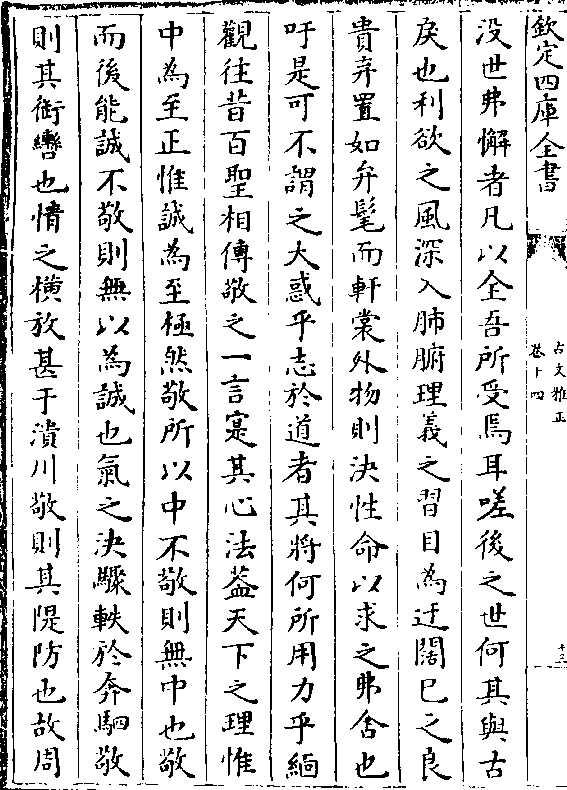 欽定四庫全書
古文雅正
卷十四
十三
没世弗懈者凡以全吾所受焉耳嗟後之世何其與古
戾也利欲之風深入肺腑理義之習目為迂闊已之良
貴弃置如弁髦而軒裳外物則決性命以求之弗舍也
吁是可不謂之大惑乎志於道者其將何所用力乎緬
觀往昔百聖相傳敬之一言寔其心法葢天下之理惟
中為至正惟誠為至極然敬所以中不敬則無中也敬
而後能誠不敬則無以為誠也氣之決驟軼於奔駟敬
則其銜轡也情之横放甚于潰川敬則其隄防也故周